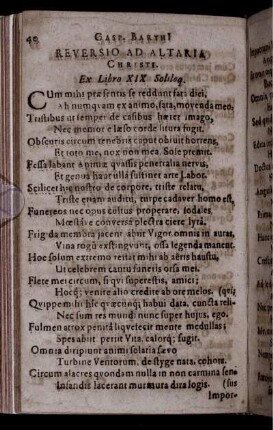 40 GASP. BARTHI
REVERSIO AD ALTARIA
CHRISTI.
Ex Libro XIX Soliloq.
CUm mihi præsentis se reddunt fata diei,
Ah numquam ex animo, fata, movenda meo,
Tristibus ut semper de casibus hæret imago,
Nec memor è læso corde litura fugit.
Obscuris circum tenebris caput obruit horrens,
Et toto me, nox non mea, Sole premit.
Fessa labant Animæ quassis penetralia nervis,
Et genua haut ulla sustinet arte Labor.
Scilicet hîc nostro de corpore, triste relatu,
Triste etiam auditu, turpe cadaver homo est,
Funereos nec opus cultus properare, sodales,
Mæstâve conversâ plectra ciere lyrâ.
Frigida memora jacent abiit Vigor omnis in auras,
Vina rogû exstinguunt, ossa legenda manent.
Hoc solum extremo restat mihi ab aëris haustu,
Ut celebrem cantu funeris orsa mei.
Flete mei circum, si qui superestis, amici;
Hocq; venire alio credite ab ore melos.
Quippe mihi hîc quæcunq; habui data, cuncta reliqui;
Nec sum res mundi nunc super hujus, ego.
Fulmen atrox penitâ liquefecit mente medullas;
Spes abiit periit Vita, calorq; fugit.
Omnia diripiunt animi solaria sævo
Turbine Ventorum, de styge nata, cohors.
Circum alacres quondam nulla in non carmina sensus
Infandis lacerant murmura dira logis.
Impor-